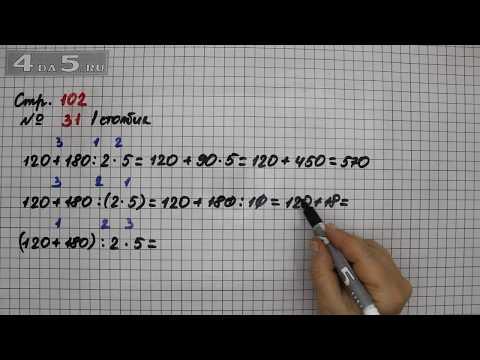 4DA5.RU
Стр. 102
№ 31 1 столбик
3 1 2
120 + 180 : 2 · 5 = 120 + 90 · 5 = 120 + 450 = 570
3 2 1
120 + 180 : (2 · 5) = 120 + 180 : 10 = 120 + 18 =
1 2 3
(120 + 180) : 2 · 5 =